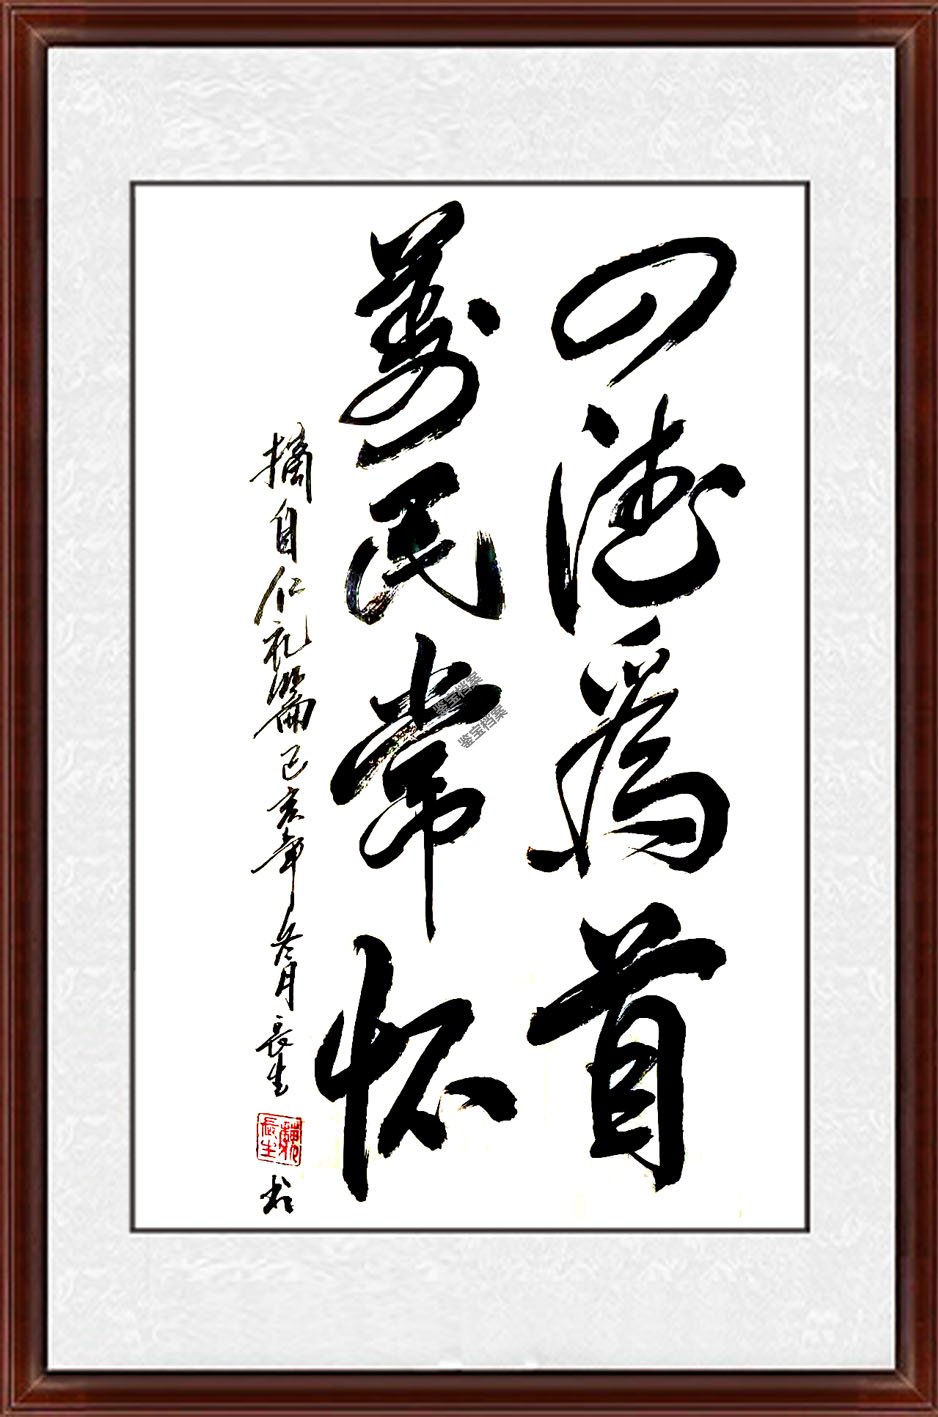 四德為首
萬民常怀
摘自仁礼篇己亥年冬月長生
魏長生
书
鉴宝档案
鉴宝档案